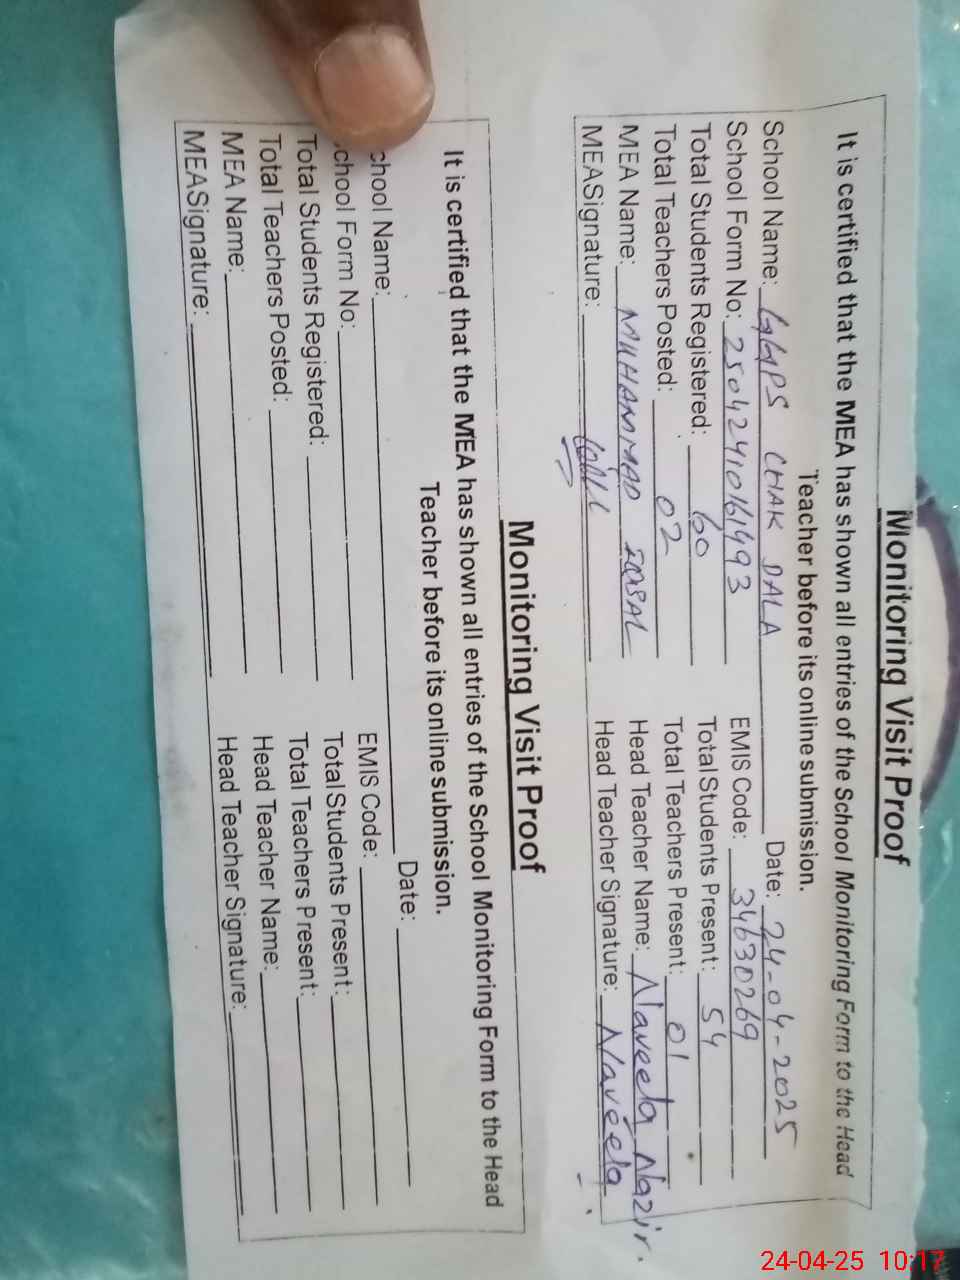 Monitoring Visit Proof
It is certified that the MEA has shown all entries of the School Monitoring Form to the Head
Teacher before its online submission.
School Name: GGPS CHAK DALA Date: 24-04-2025
School Form No: 25042410161493 EMIS Code: 34630269
Total Students Registered: 60 Total Students Present: 54
Total Teachers Posted: 02 Total Teachers Present: 01
MEA Name: MUHAMMAD IQBAL Head Teacher Name: Naveela Nazir.
MEASignature: Head Teacher Signature: Naveela
Monitoring Visit Proof
It is certified that the MEA has shown all entries of the School Monitoring Form to the Head
Teacher before its online submission.
chool Name: Date:
chool Form No: EMIS Code:
Total Students Registered: Total Students Present:
Total Teachers Posted: Total Teachers Present:
MEA Name: Head Teacher Name:
MEASignature: Head Teacher Signature:
24-04-25 10:17